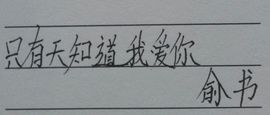 只有天知道我爱你
俞书